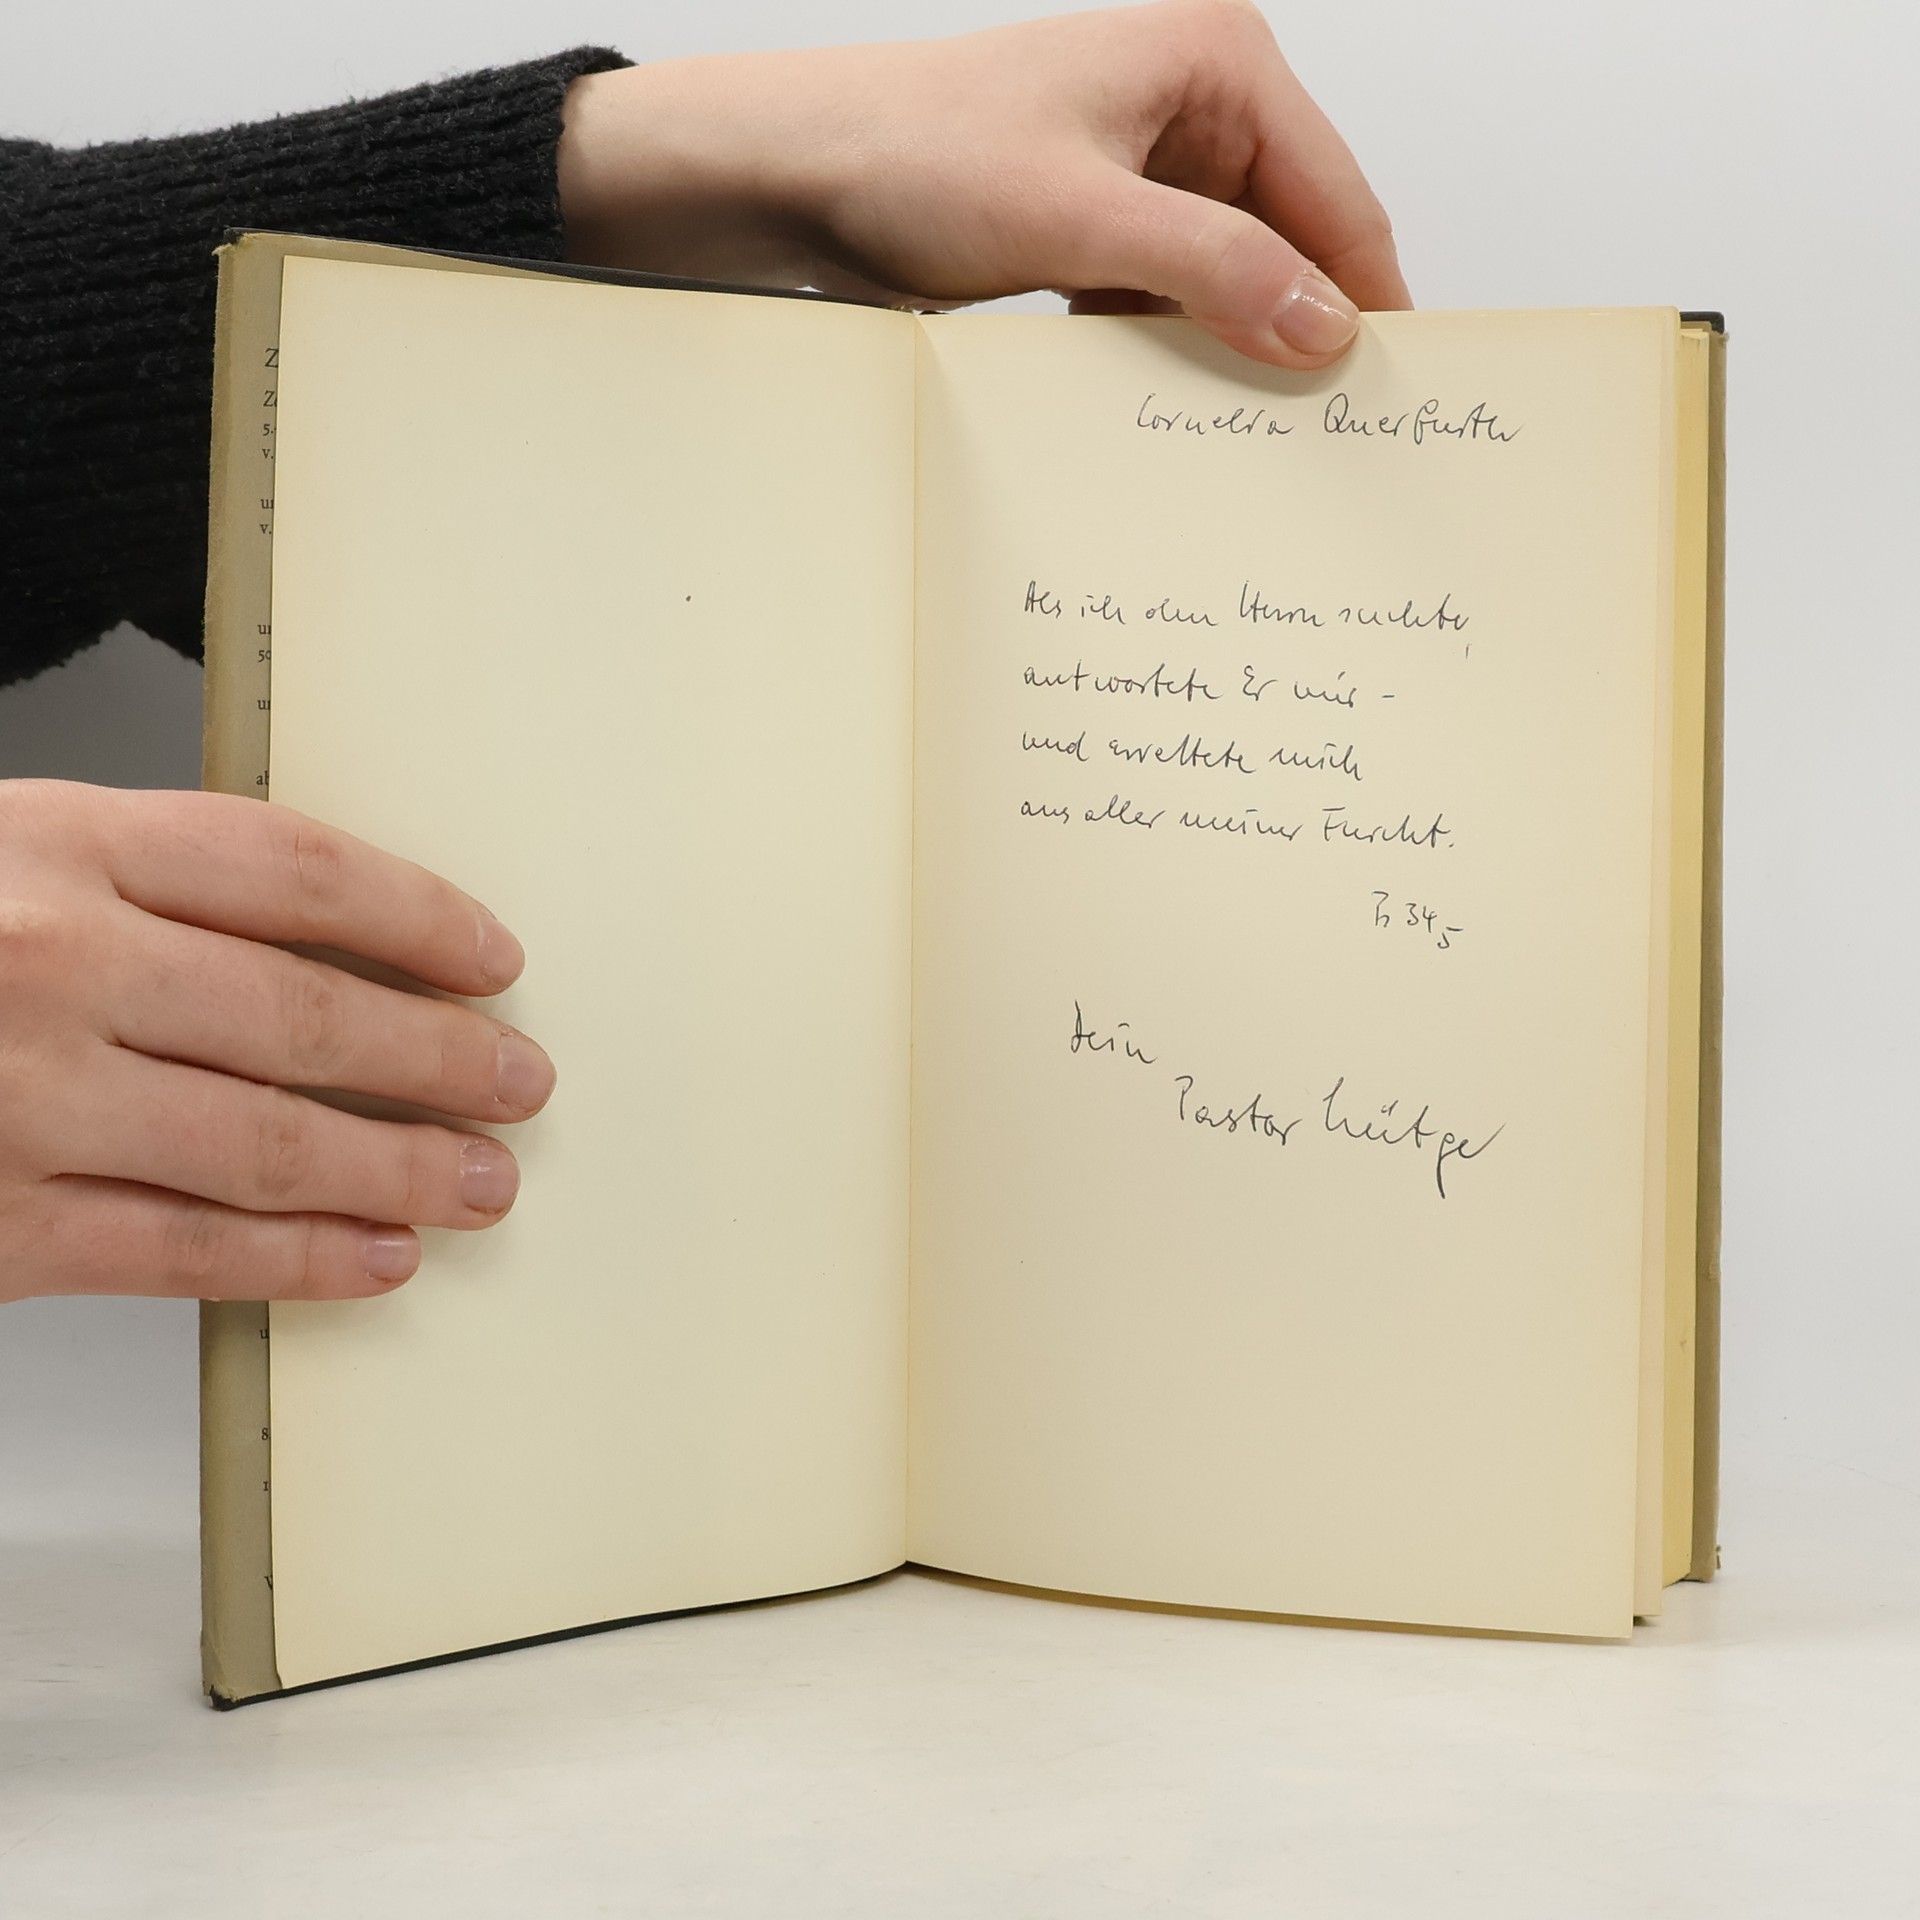 Cornelia Querfurth
Als ich den Herrn suchte,
antwortete Er mir -
und errettete mich
aus aller meiner Furcht.
Ps 34,5
Dein
Pastor Lütge